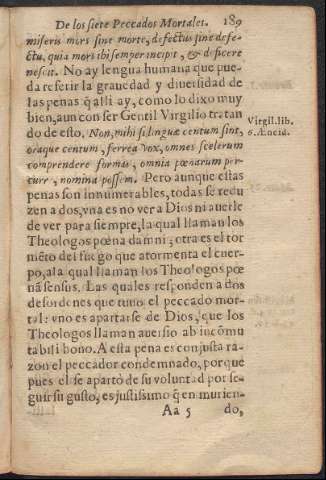 De los siete Peccados Mortales. 189
miseris mors sine morte, defectus sine defe-
ctu, quia mors ibi semper incipit, & deficere
nescit. No ay lengua humana que pue-
da referir la grauedad y diuersidad de
las penas q̃ alli ay, como lo dixo muy
bien, aun con ser Gentil Virgilio tratan
do de esto. Non, mihi si linguæ centum sint,
oraque centum, ferrea vox, omnes scelerum
comprendere formas, omnia pœnarum per-
curr, nomina possem. Pero aunque estas
penas son innumerables, todas se redu
zen a dos, vna es no ver a Dios ni auerle
de ver para siempre, la qual llaman los
Theologos pœna damni; otra es el tor
mẽto del fuego que atormenta el cuer-
po, a la qual llaman los Theologos pœ
nã sensus. Las quales responden a dos
desordenes que tuuo el peccado mor-
tal: vno es apartarse de Dios, que los
Theologos llaman auersio ab incõmu
tabili bono. A esta pena es con justa ra-
zon el peccador condemnado, porque
pues el se apartò de su voluntad por se-
guir su gusto, es justissimo q̃ en murien-
Aa 5 do,
Virgil. lib.
6. Æneid.